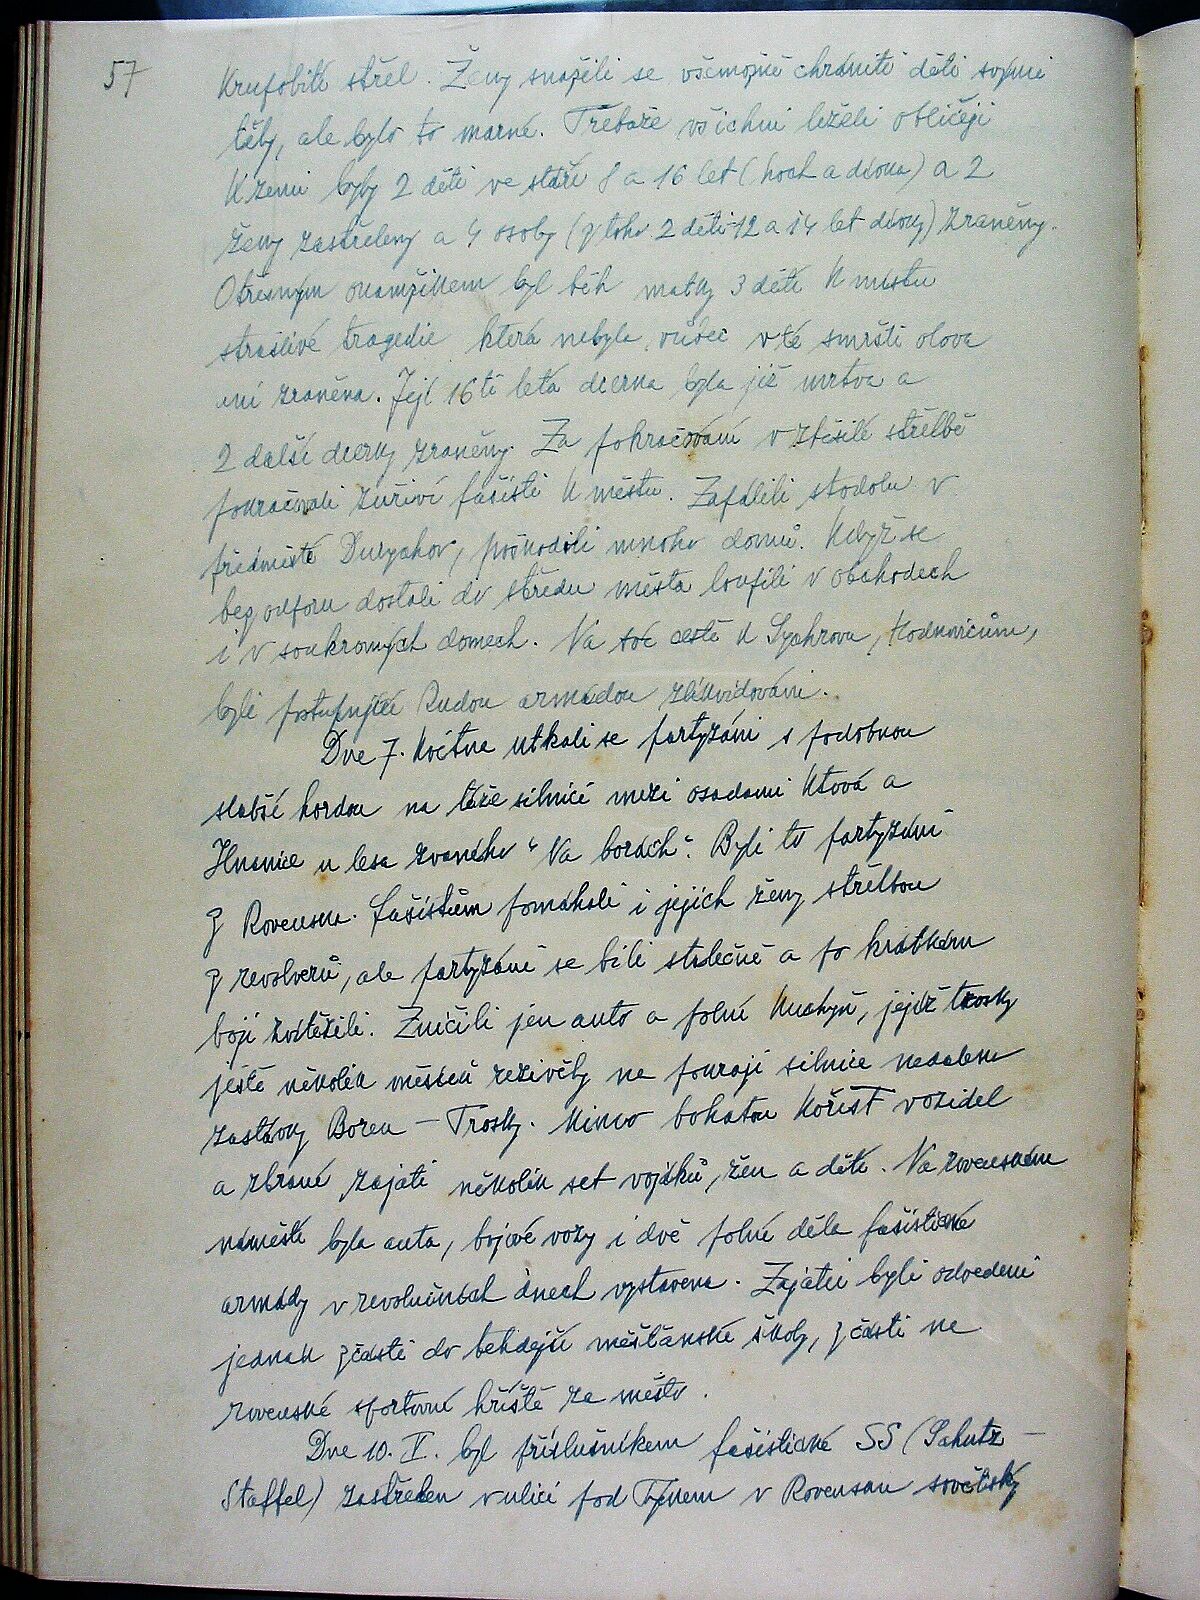 57
Krupobití střel. Ženy snažili se všemožně chrániti děti svými
těly, ale bylo to marné. Třebaže všichni leželi obličeji
K zemi byly 2 děti ve stáří 8 a 16 let (hoch a dívka) a 2
ženy zastřeleny a 4 osoby (z toho 2 děti 12 a 14 let dívky) zraněny.
Otřesným okamžikem byl běh matky 3 dětí K místu
strašlivé tragedie která nebyla vůbec v té smršti olova
ani zraněna. Její 16 ti letá dcerka byla již mrtva a
2 další dcerky zraněny. Za pokračování v zběsilé střelbě
pokračovali zuřiví fašisti K městu. Zapálili stodolu v
předměstí Durychov, poškodili mnoho domů. Když se
bez odporu dostali do středu města loupili v obchodech
i v soukromých domech. Na cestě K Sychrovu, Hodkovicům,
byli postupující Rudou armádou zlikvidováni.
Dne 7. Května utkali se partyzáni s podobnou
slabší hordou na téže silnici mezi osadami Ktová a
Hnanice u lesa zvaného "Na borách". Byli to partyzáni
z Rovenska. fašistům pomáhali i jejich ženy střelbou
z revolverů, ale partyzáni se bili statečně a po krátkém
boji zvítězili. Zničili jen auto a polní Kuchyň, jejíž trosky
ještě několik měsíců rezivěly na pokraji silnice nedaleko
zastávky Borek – Trosky. Mimo bohatou Kořist vozidel
a zbraní zajati několik set vojáků, žen a dětí. Na rovenském
náměstí byla auta, bojové vozy i dvě polní děla fašistické
armády v revolučních dnech vystavena. Zajatci byli odvedeni
jednak zčásti do tehdejší měšťanské školy, zčásti na
rovenské sportovní hřiště za město.
Dne 10. V. byl příslušníkem fašistické SS (Schutz –
Staffel) zastřelen v ulici pod Týnem v Rovensku sovětský